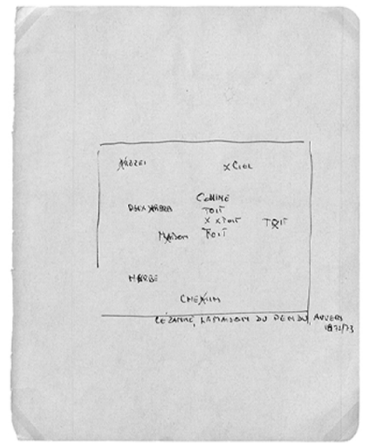 x CIEL
COLLINE
DEUX ARBRES TOIT
x x TOIT TOIT
MAISON TOIT
CHEMIN
CÉZANNE, LA MAISON DU PENDU, AUVERS
1872/73